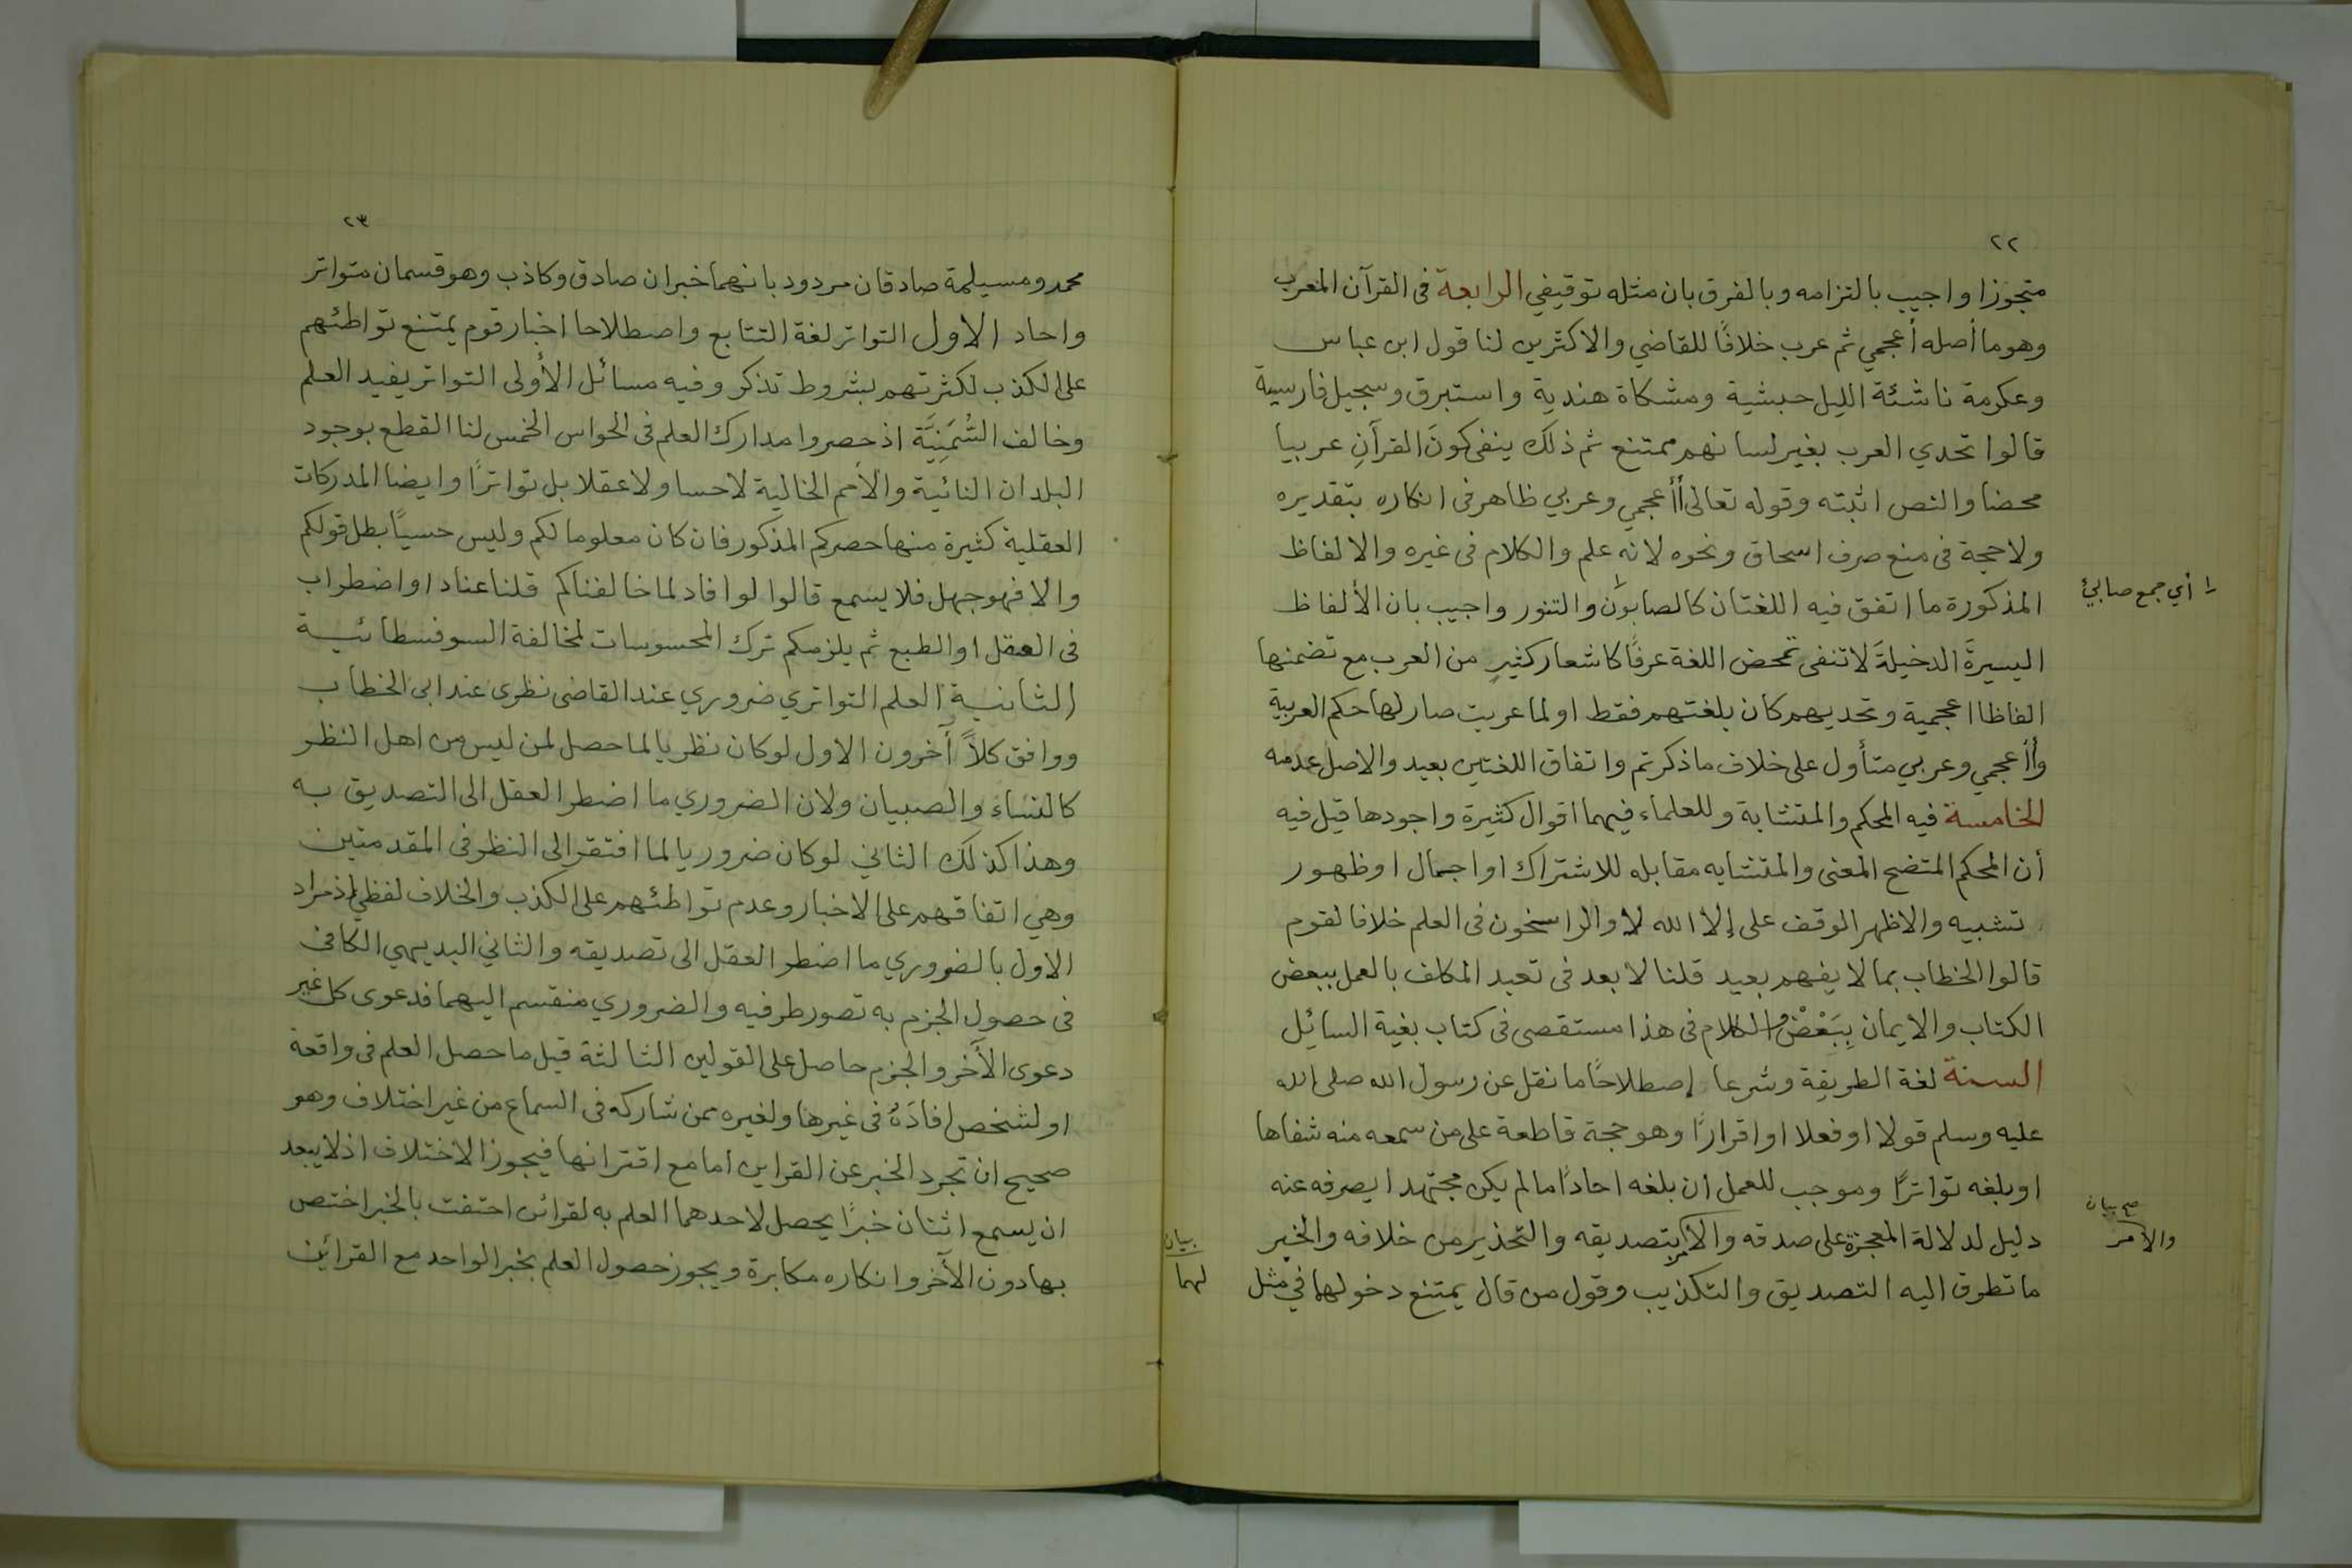 ٢٢
متجوزا واجيب بالتزامه وبالفرق بان مثله توقيفي الرابعة فى القرآن المعرب
وهو ما أصله أعجمي ثم عرب خلافًا للقاضي والاكثرين لنا قول ابن عباس
وعكرمة ناشئة الليل حبشية ومشكاة هندية واستبرق وسجيل فارسية
قالوا تحدي العرب بغير لسانهم ممتنع ثم ذلك ينفى كونَ القرآنِ عربيا
محضا والنص اثبته وقوله تعالى أأعجمي وعربي ظاهر فى انكاره بتقديره
ولا حجة فى منع صرف اسحاق ونحوه لانه علم والكلام فى غيره والالفاظ
المذكورة ما اتفق فيه اللغتان كالصابون والتنور واجيب بان الألفاظ
١ أي جمع صابئ
اليسيرةَ الدخيلةَ لا تنفى تمحض اللغة عرفًا كاشعار كثيرٍ من العرب مع تضمنها
الفاظا اعجمية وتحديهم كان بلغتهم فقط او لما عربت صار لها حكم العربية
وأأعجمي وعربي متأول على خلاف ما ذكرتم واتفاق اللغتين بعيد والاصل عدمه
الخامسة فيه المحكم والمتشابة وللعلماء فيهما اقوال كثيرة واجودها قيل فيه
أن المحكم المتضح المعنى والمتشابه مقابله للاشتراك او اجمال او ظهور
تشبيه والاظهر الوقف على إلا الله لا والراسخون فى العلم خلافا لقوم
قالوا الخطاب بما لا يفهم بعيد قلنا لا بعد فى تعبد المكلف بالعمل ببعض
الكتاب والايمان بِبَعْضٍ والكلام فى هذا مستقصى فى كتاب بغية السائيل
السنة لغة الطريقة وشرعا إصطلاحًا ما نقل عن رسول الله صلى الله
عليه وسلم قولا او فعلا او اقرارًا وهو حجة قاطعة على من سمعه منه شفاها
او بلغه تواترًا وموجب للعمل ان بلغه احادًا ما لم يكن مجتهدا يصرفه عنه
صح بيان
والأمر
دليل لدلالة المعجزة على صدقه والأمر بتصديقه والتحذير من خلافه والخبر
ما تطرق اليه التصديق والتكذيب وقول من قال يمتنع دخولهما في مثل
بيان
لهما
٢٣
محمد ومسيلمة صادقان مردود بانهما خبران صادق وكاذب وهو قسمان متواتر
واحاد الاول التواتر لغة التتابع واصطلاحا اخبار قوم يمتنع تواطئهم
على الكذب لكثرتهم بشروط تذكر وفيه مسائل الأولى التواتر يفيد العلم
وخالف السُّمَنِيَّة اذ حصروا مدارك العلم فى الحواس الخمس لنا القطع بوجود
البلدان النائية والأمم الخالية لا حسا ولا عقلا بل تواترًا وايضا المدركات
العقلية كثيرة منها حصركم المذكور فان كان معلوما لكم وليس حسيًا بطل قولكم
والا فهو جهل فلا يسمع قالوا لو افاد لما خالفناكم قلنا عنادا واضطراب
فى العقل او الطبع ثم يلزمكم ترك المحسوسات لمخالفة السوفسطائية
الثانية العلم التواتري ضروري عند القاضى نظرى عند ابى الخطاب
ووافق كلاً آخرون الاول لو كان نظريا لما حصل لمن ليس من اهل النظر
كالنساء والصبيان ولان الضروري ما اضطر العقل الى التصديق به
وهذا كذلك الثاني لو كان ضروريا لما افتقر الى النظر فى المقدمتين
وهي اتفاقهم على الاخبار وعدم تواطئهم على الكذب والخلاف لفظي اذ مراد
الاول بالضروري ما اضطر العقل الى تصديقه والثاني البديهي الكافى
فى حصول الجزم به تصور طرفيه والضروري منقسم اليهما فدعوى كل غير
دعوى الأخر والجزم حاصل على القولين الثالثة قيل ما حصل العلم فى واقعة
او لشخص افادَهُ فى غيرها ولغيره ممن شاركه فى السماع من غير اختلاف وهو
صحيح ان تجرد الخبر عن القراين اما مع اقترانها فيجوز الاختلاف اذ لا يبعد
ان يسمع اثنان خبرًا يحصل لاحدهما العلم به لقرائن احتفت بالخبر اختص
بها دون الآخر وانكاره مكابرة ويجوز حصول العلم بخبر الواحد مع القرائين